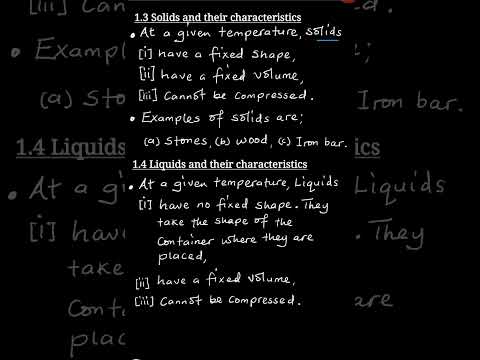 1.3 Solids and their characteristics
• At a given temperature, solids
[i] have a fixed shape,
[ii] have a fixed volume,
[iii] Cannot be compressed.
• Examples of solids are;
(a) Stones, (b) Wood, (c) Iron bar.
1.4 Liquids and their characteristics
• At a given temperature, Liquids
[i] have no fixed shape. They
take the shape of the
Container where they are
placed,
[ii] have a fixed volume,
[iii] Cannot be compressed.